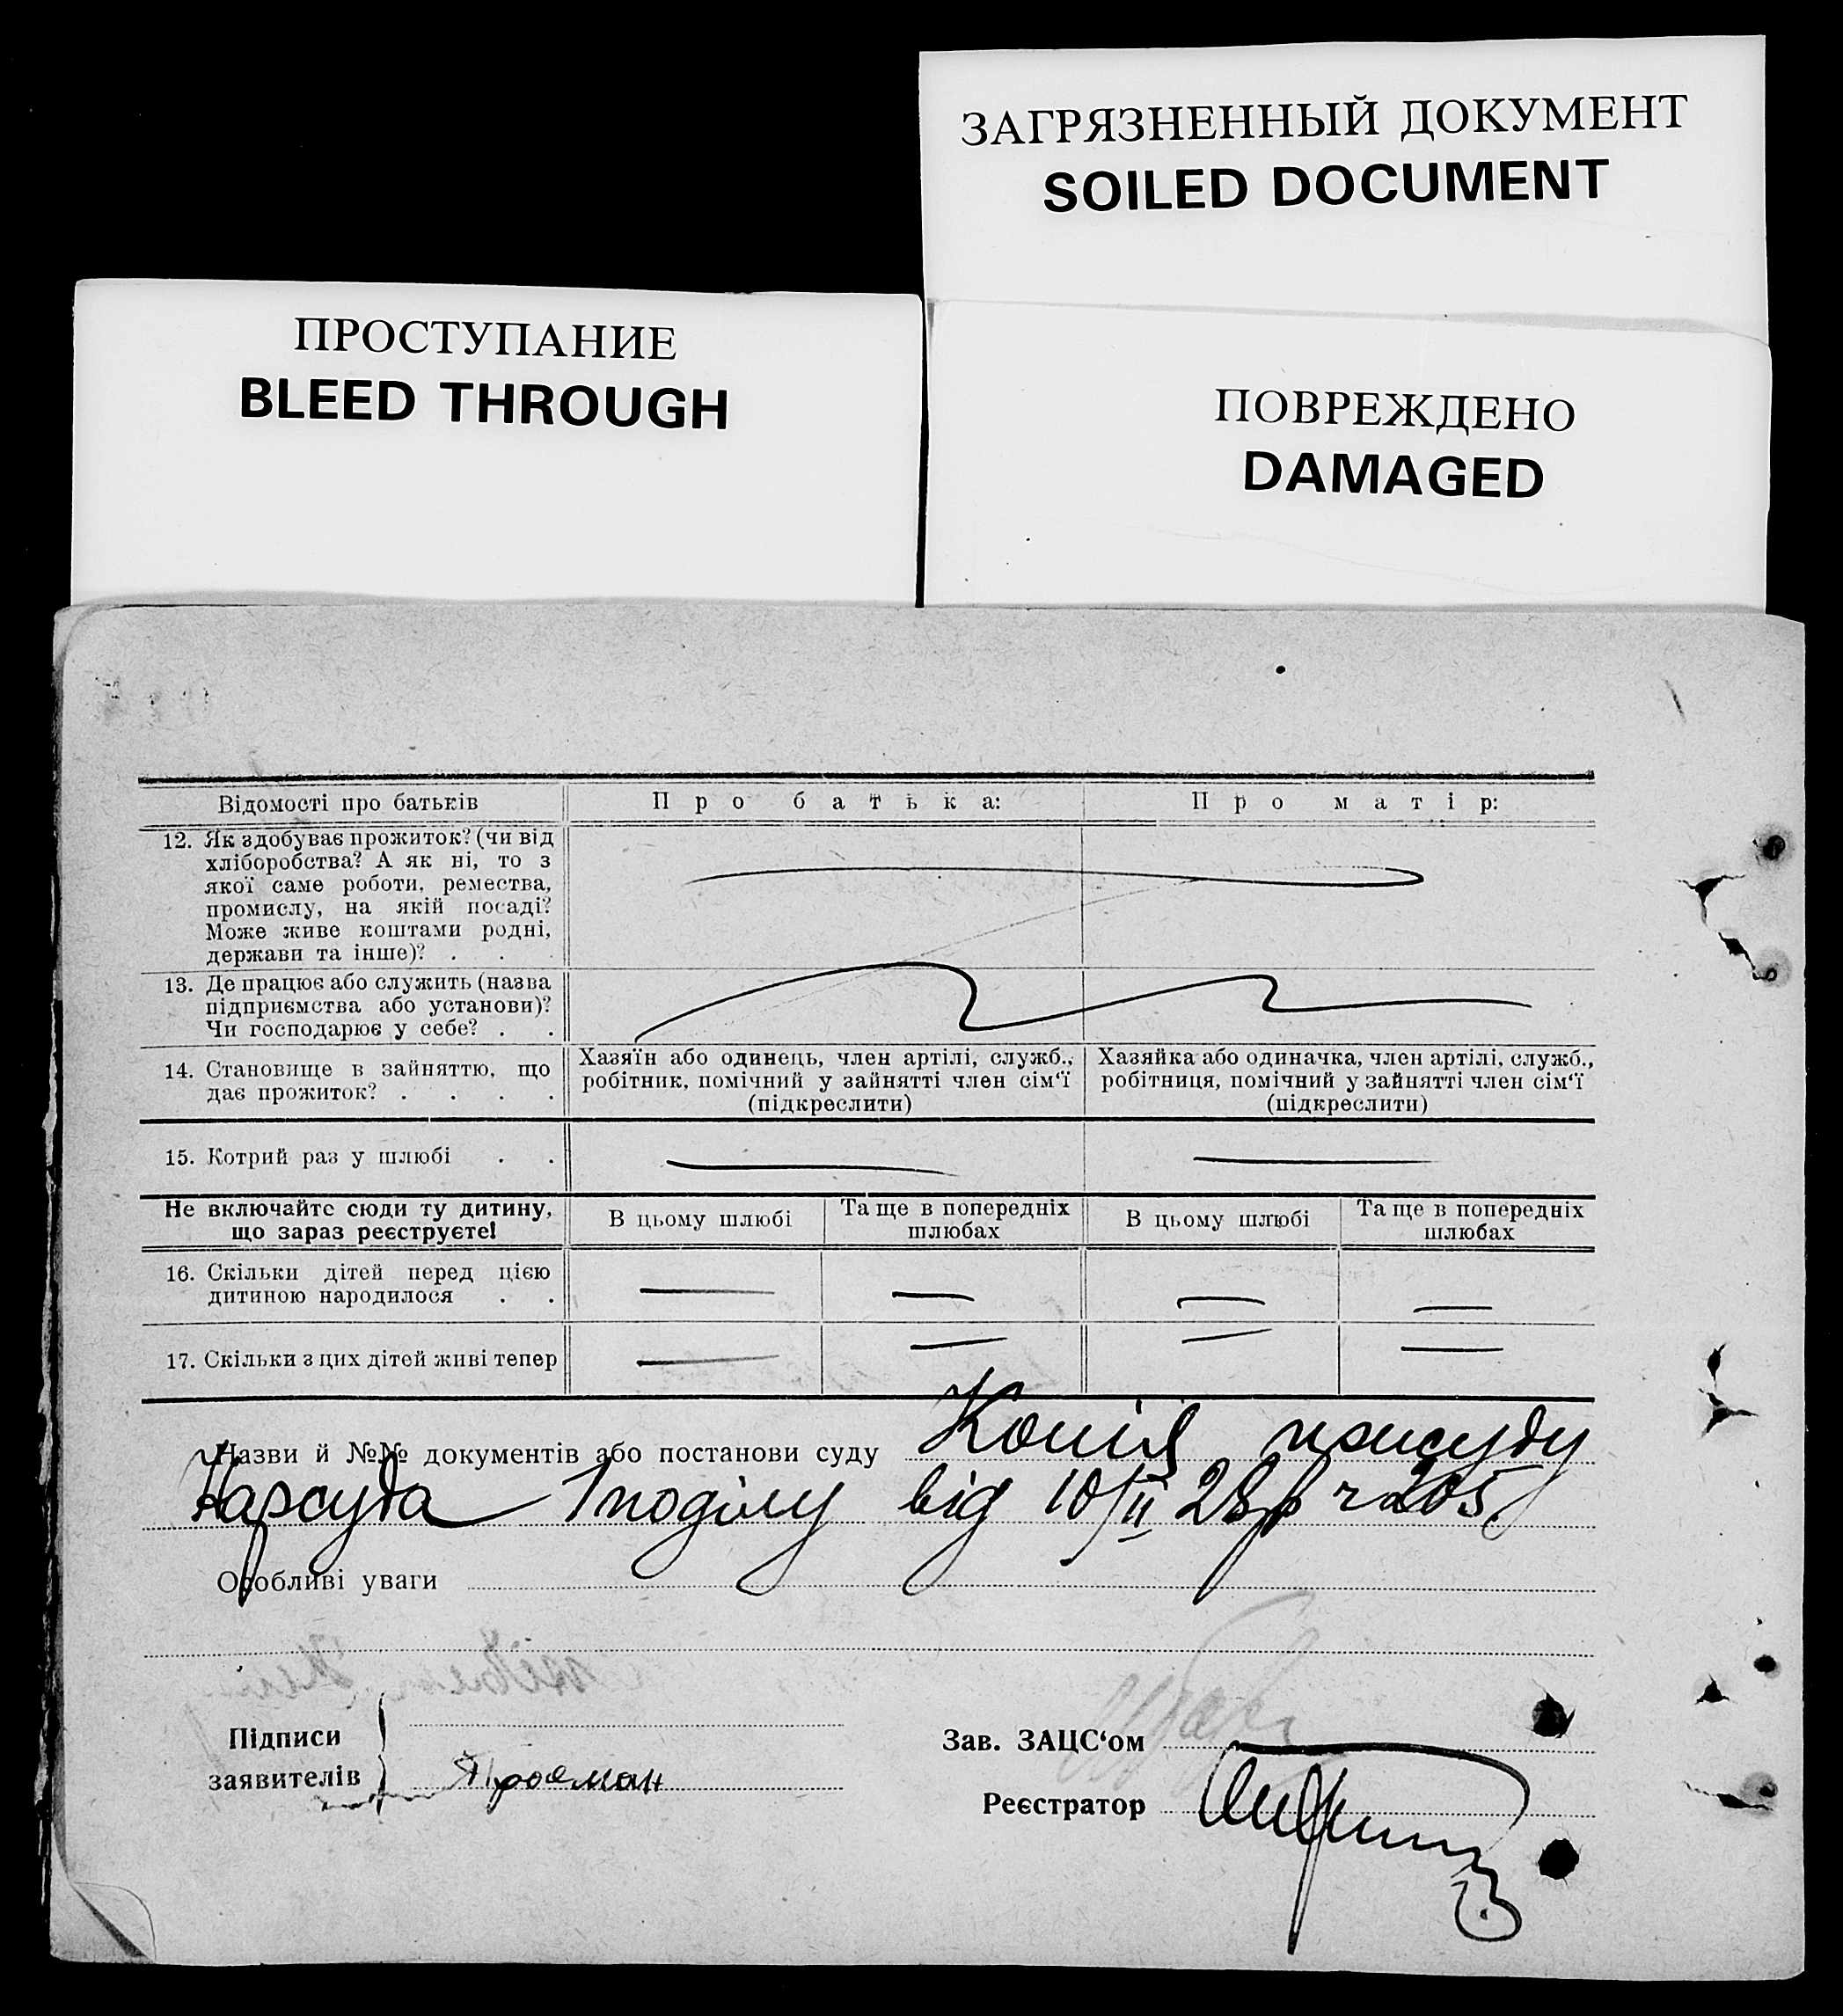 ЗАГРЯЗНЕННЫЙ ДОКУМЕНТ
SOILED DOCUMENT
ПРОСТУПАНИЕ
BLEED THROUGH
ПОВРЕЖДЕНО
DAMAGED
Відомості про батьків
Про батька:
Про матір:
12. Як здобуває прожиток? (чи від
хліборобства? А як ні, то з
якої саме роботи, ремества,
промислу, на якій посаді?
Може живе коштами родні,
держави та інше)? . . .
13. Де працює або служить (назва
підприємства або установи)?
Чи господарює у себе? . .
14. Становище в зайняттю, що
дає прожиток? . . . .
Хазяїн або одинець, член артілі, служб.,
робітник, помічний у зайнятті член сім‘ї
(підкреслити)
Хазяйка або одиначка, член артілі, служб.,
робітниця, помічний у зайнятті член сім‘ї
(підкреслити)
15. Котрий раз у шлюбі . .
Не включайте сюди ту дитину,
що зараз реєструєте!
В цьому шлюбі
Та ще в попередніх
шлюбах
В цьому шлюбі
Та ще в попередніх
шлюбах
16. Скільки дітей перед цією
дитиною народилося . .
17. Скільки з цих дітей живі тепер
Назви й №№ документів або постанови суду Копія присуду
Нарсуда 1 поділу від 10/II 28 р ч 205
Особливі уваги
Підписи
заявителів
Зав. ЗАЦС‘ом
Реєстратор